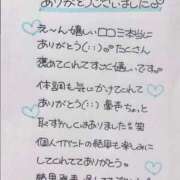 ありがとうございました
え〜ん嬉しい口コミ本当に
ありがとう(；；)たこさん
褒めてくれてすごく嬉しいです。
体調も気にかけてくれて
ありがとう(；；) 声ちょっと
恥ずかしくはありました 笑
個人イベントの結果も楽しみに
してくれててありがとう。